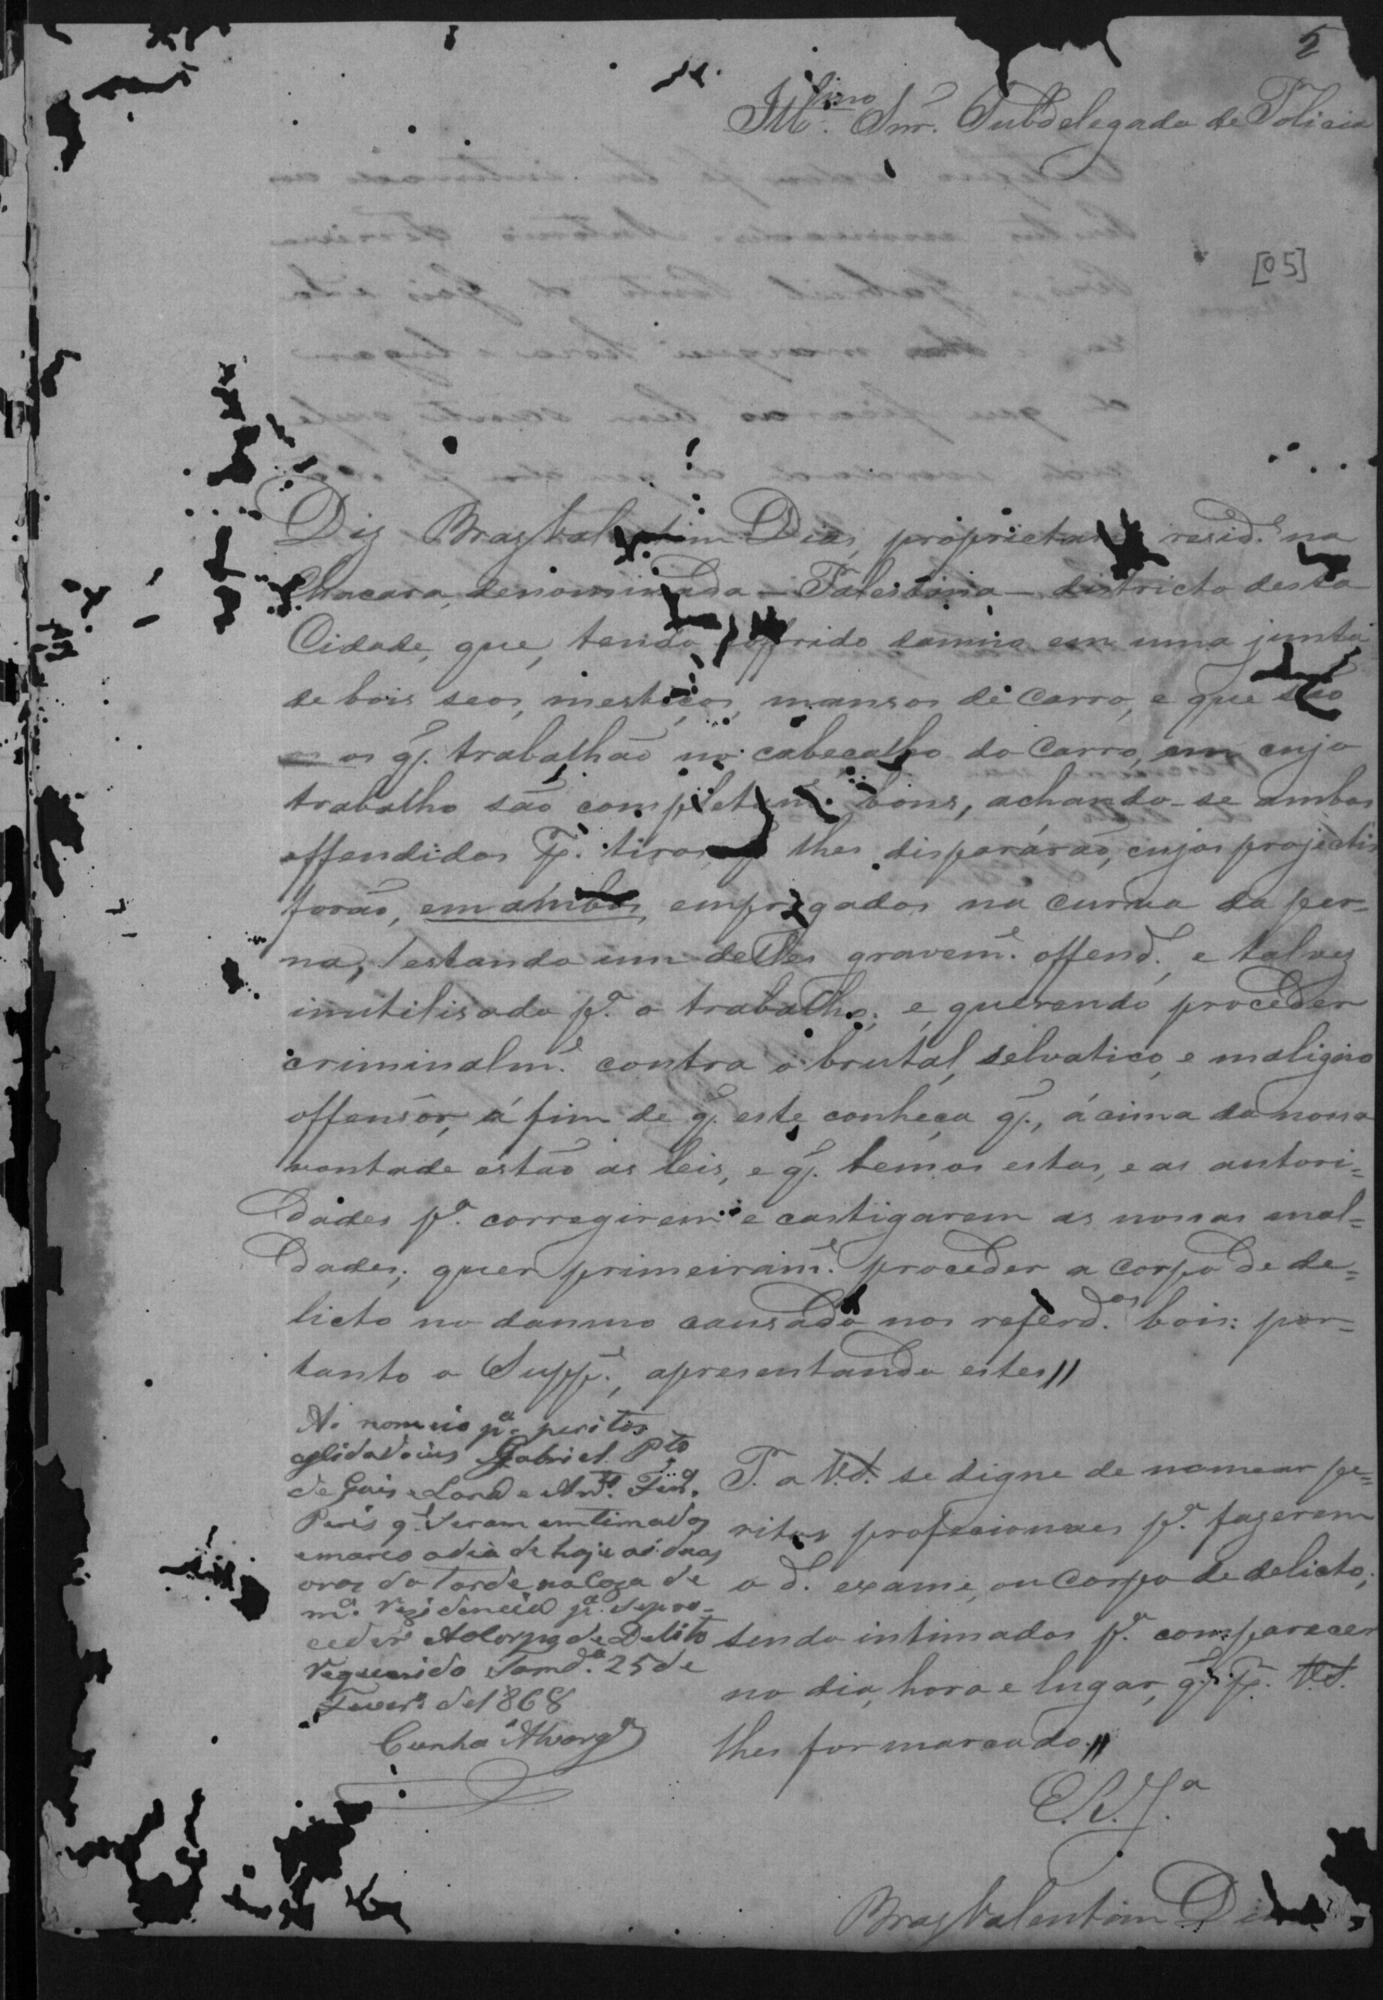 5
Illmo. Snr. Subdelegado de Policia
[05]
Diz Braz Valentim Dias, proprietario resid.e na
Chacara, denominada — Palestina — districto desta
Cidade, que, tendo soffrido damno em uma junta
de bois seos, mestiços, mansos de carro, e que são
os q. trabalhão no cabeçalho do carro, em cujo
trabalho são completam.e bons, achando-se ambos
offendidos p. tiros q lhes disparárão, cujos projectis
forão, em ambos, empregados na curva da per=
na, estando um delles gravem.e offend., e talvez
inutilisado p.a o trabalho; e querendo proceder
criminalm.e contra o brutal, selvatico, e maligno
offensôr, á fim de q. este conheça q., ácima da nossa
vontade estão as leis, e q. temos estas, e as autori=
dades p.a corregirem e castigarem as nossas mal=
dades; quer primeiram.e proceder a corpo de de=
licto no damno causado nos referd.os bois: por=
tanto o Supp.e, apresentando estes //
P. a V.S. se digne de nomear pe=
ritos profecionaes p.a fazerem
o d. exame, ou corpo de delicto;
sendo intimados p.a comparecer
no dia, hora e lugar, q. p. V.S.
lhes for marcado. //
E. R. J.a
Braz Valentim Dias
Ao nomeio p.a peritos
Gabriel P.to
de Gois e Lara e Ant.o Ferr.a
Peris q. seram emtimados
e marco o dia de hoje as duas
oras da Tarde na Caza de
m.a Rezidencia p.a se pro=
ceder Ao Corpo de Delito
Requerido 25 de
Fever.o de 1868
Cunha Alvarg.a